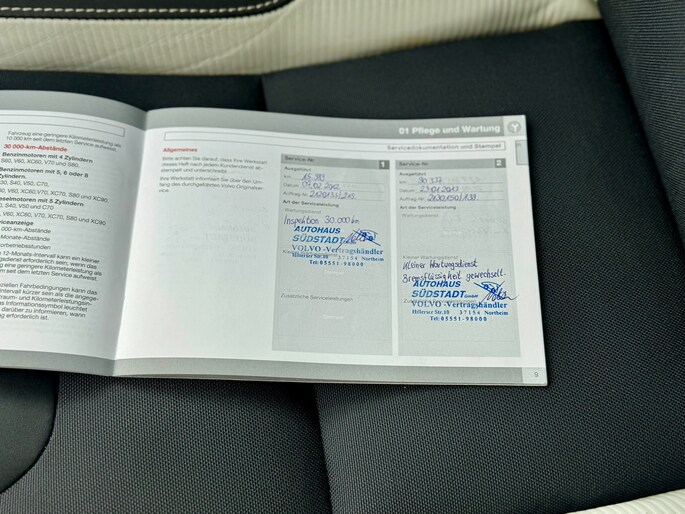 Fahrzeug eine geringere Kilometerleistung als
10 000 km seit dem letzten Service aufweist.
30 000-km-Abstände
Benzinmotoren mit 4 Zylindern
S60, V60, XC60, V70 und S80,
Benzinmotoren mit 5, 6 oder 8
Zylindern.
C30, S40, V50, C70,
S60, V60, XC60, V70, XC70, S80 und XC90
Dieselmotoren mit 5 Zylindern
C30, S40, V50 und C70
V60, XC60, V70, XC70, S80 und XC90
Serviceanzeige
000-km-Abstände
Monate-Abstände
12-Monats-Intervall kann ein kleiner
dienst erforderlich sein, wenn das
eine geringere Kilometerleistung als
seit dem letzten Service aufweist.
speziellen Fahrbedingungen kann das
Intervall kürzer sein als die angege-
Zeitraum- und Kilometerleistungsin-
das Informationssymbol leuchtet
darüber zu informieren, wann
erforderlich ist.
01 Pflege und Wartung
Servicedokumentation und Stempel
Allgemeines
Bitte achten Sie darauf, dass Ihre Werkstatt
dieses Heft nach jedem Kundendienst ab-
stempelt und unterschreibt.
Ihre Werkstatt informiert Sie über den Um-
fang des durchgeführten Volvo Originalser-
vice.
Service-Nr. 1
Ausgeführt
km
Datum 07.02.2012
Auftrag-Nr.
Art der Serviceleistung
Wartungsdienst
Inspektion 30.000km
AUTOHAUS
SÜDSTADT GmbH
VOLVO -Vertragshändler
Hillerser Str.10 37154 Northeim
Tel: 05551-98000
Zusätzliche Serviceleistungen
Service-Nr. 2
Ausgeführt
km 30.337
Datum 23.01.2013
Auftrag-Nr.
Art der Serviceleistung
Wartungsdienst
Kleiner Wartungsdienst
Kleiner Wartungsdienst
Bremsflüssigkeit gewechselt.
AUTOHAUS
SÜDSTADT GmbH
VOLVO -Vertragshändler
Hillerser Str.10 37154 Northeim
Tel: 05551-98000
9